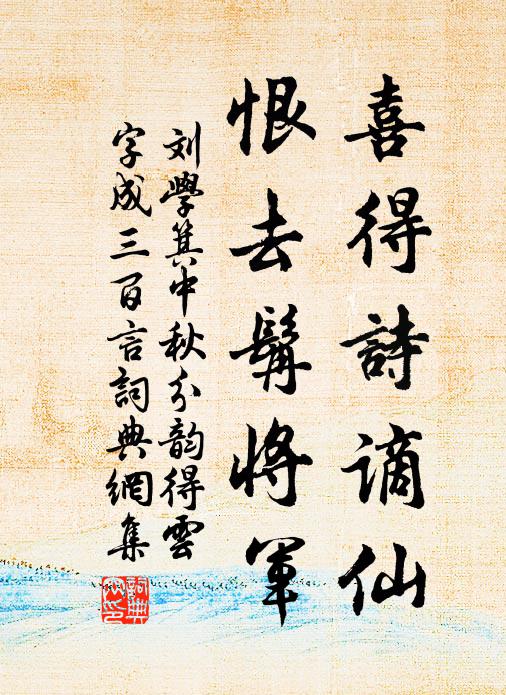 喜得詩谪仙
恨去髯將军
刘學箕中秋分韵得雲
字成三百言詞典網集